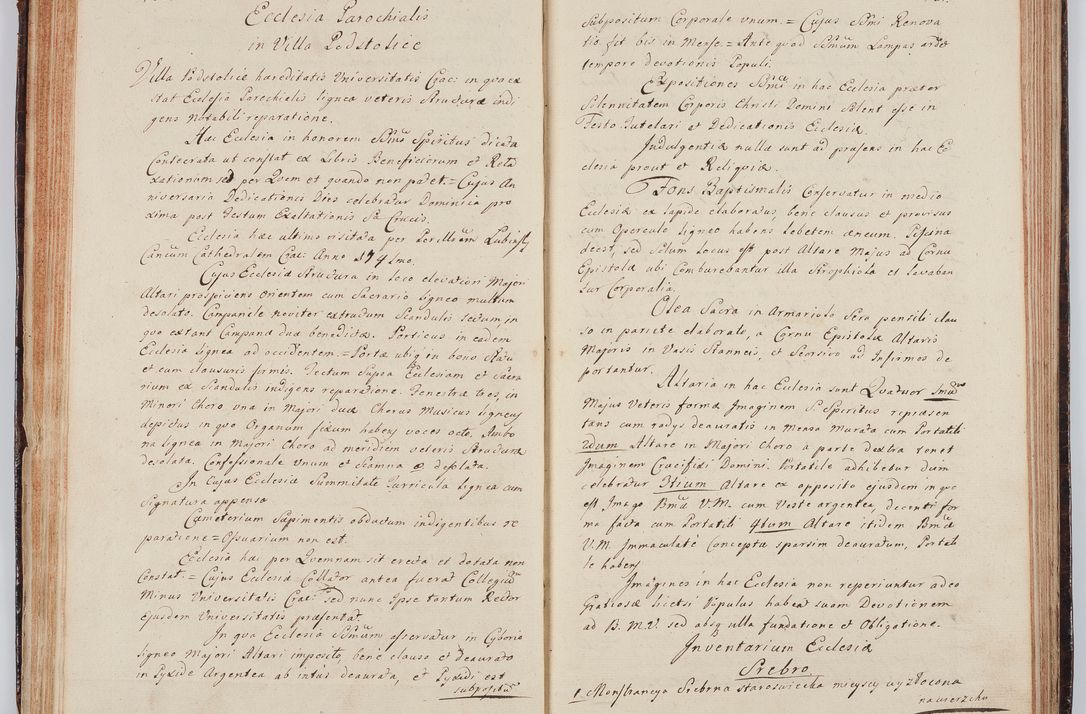 Ecclesia Parochialis
in Villa Podstolice
Villa Podstolice hæreditatis Universitatis Crac: in qua ex
stat Ecclesia Parochialis lignea veteris Structuræ indi
gens notabili reparatione.
Hæc Ecclesia in honorem Sõmi Spiritus dicata
Consecrata ut constat ex Libris Beneficiorum et Reta
xationum sed per Quem et quando non patet. = Cujus An
niversaria Dedicationis Dies celebratur Dominica pro
xima post Festum Exaltationis S. Crucis.
Ecclesia hæc ultimo visitata per Perillrem Lubinsk
Canñcum Cathedralem Crac: Anno 1741mo.
Cujus Ecclesiæ Structura in loco elevatiori Majori
Altari prospiciens Orientem cum Sacrario ligneo multum
desolato. Campanile noviter extructum Scandulis tectum, in
quo extant Campanæ duæ benedictæ. Porticus in eadem
Ecclesia lignea ad occidentem. = Portæ ubiq in bono Statu
et cum clausuris firmis. Tectum Supra Ecclesiam et Sacra
rium ex Scandulis indigens reparatione. Fenestræ tres, in
Minori Choro una in Majori duæ Chorus Musicus ligneus
depictus in quo Organum fixum habens voces octo. Ambo
na lignea in Majori Choro ad meridiem veteris Structuræ
desolata. Confessionale unum et Scamna desolata.
In Cujus Ecclesiæ Summitate Turricula lignea cum
Signatura appensa
Cæmeterium Sapimentis obductum indigentibus re
paratione = Ossuarium non est.
Ecclesia hæc per Quemnam sit erecta et dotata non
Constat. = Cujus Ecclesiæ Collator antea fuerat Collegium
Minus Universitatis Crac: sed nunc Ipse tantum Rector
Ejusdem Universitatis præsentat.
In qua Ecclesia Sõmum asservatur in Cyborio
ligneo Majori Altari imposito, bene clauso et deaurato
in Pyxide Argentea ab intus deaurata, et Pyxidi est
subpositum
Subpositum Corporale unum. = Cujus Sõmi Renova
tio fit bis in Mense. = Ante quod Sõmum Lampas ardet
tempore devotionis Populi.
Expositiones Sõmi in hac Ecclesia præter
Solennitatem Corporis Christi Domini Solent esse in
Festo Tutelari et Dedicationis Ecclesiæ.
Indulgentiæ nullæ sunt ad præsens in hac Ec
clesia prout et Reliquiæ.
Fons Baptismalis Conservatur in medio
Ecclesiæ ex lapide elaboratus, bene clausus et provisus
cum Operculo ligneo habens lebetem æneum. Piscina
deest, sed Solum Locus est post Altare Majus ad Cornu
Epistolæ ubi Comburebantur illa Strophiola et lavaban
tur Corporalia.
Olea Sacra in Armariolo Sera pensili clau
so in pariete elaborato, a Cornu Epistolæ Altaris
Majoris in Vasis Stanneis, et Seorsivo ad Infirmos de
portantur.
Altaria in hac Ecclesia sunt Quatuor 1mum
Majus Veteris formæ Imaginem S. Spiritus repræsen
tans cum radys deauratis in Mensa Murata cum Portatili
2dum Altare in Majori Choro a parte dextra tenet
Imaginem Crucifixi Domini. Portatile adhibetur dum
celebratur 3tium Altare ex opposito ejusdem in quo
est Imago Bmæ V.M. cum Veste argentea, decenti for
ma facta cum Portatili 4tum Altare itidem Bmæ
V.M. Immaculaté Conceptæ sparsim deauratum, Portati
le habens
Imagines in hac Ecclesia non reperiuntur adeo
Gratiosæ licetsi Populus habeat suam Devotionem
ad B. M. V. sed absq ulla fundatione et Obligatione.
Inventarium Ecclesiæ
Srebro
1. Monstrancya Srebrna staroswiecka mieyscy wyzłocona
na wierzchu